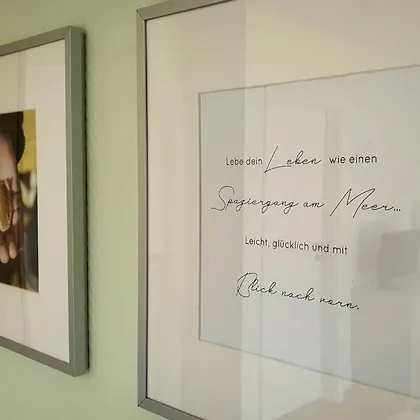 Lebe dein Leben wie einen
Spaziergang am Meer...
Leicht, glücklich und mit
Blick nach vorn.